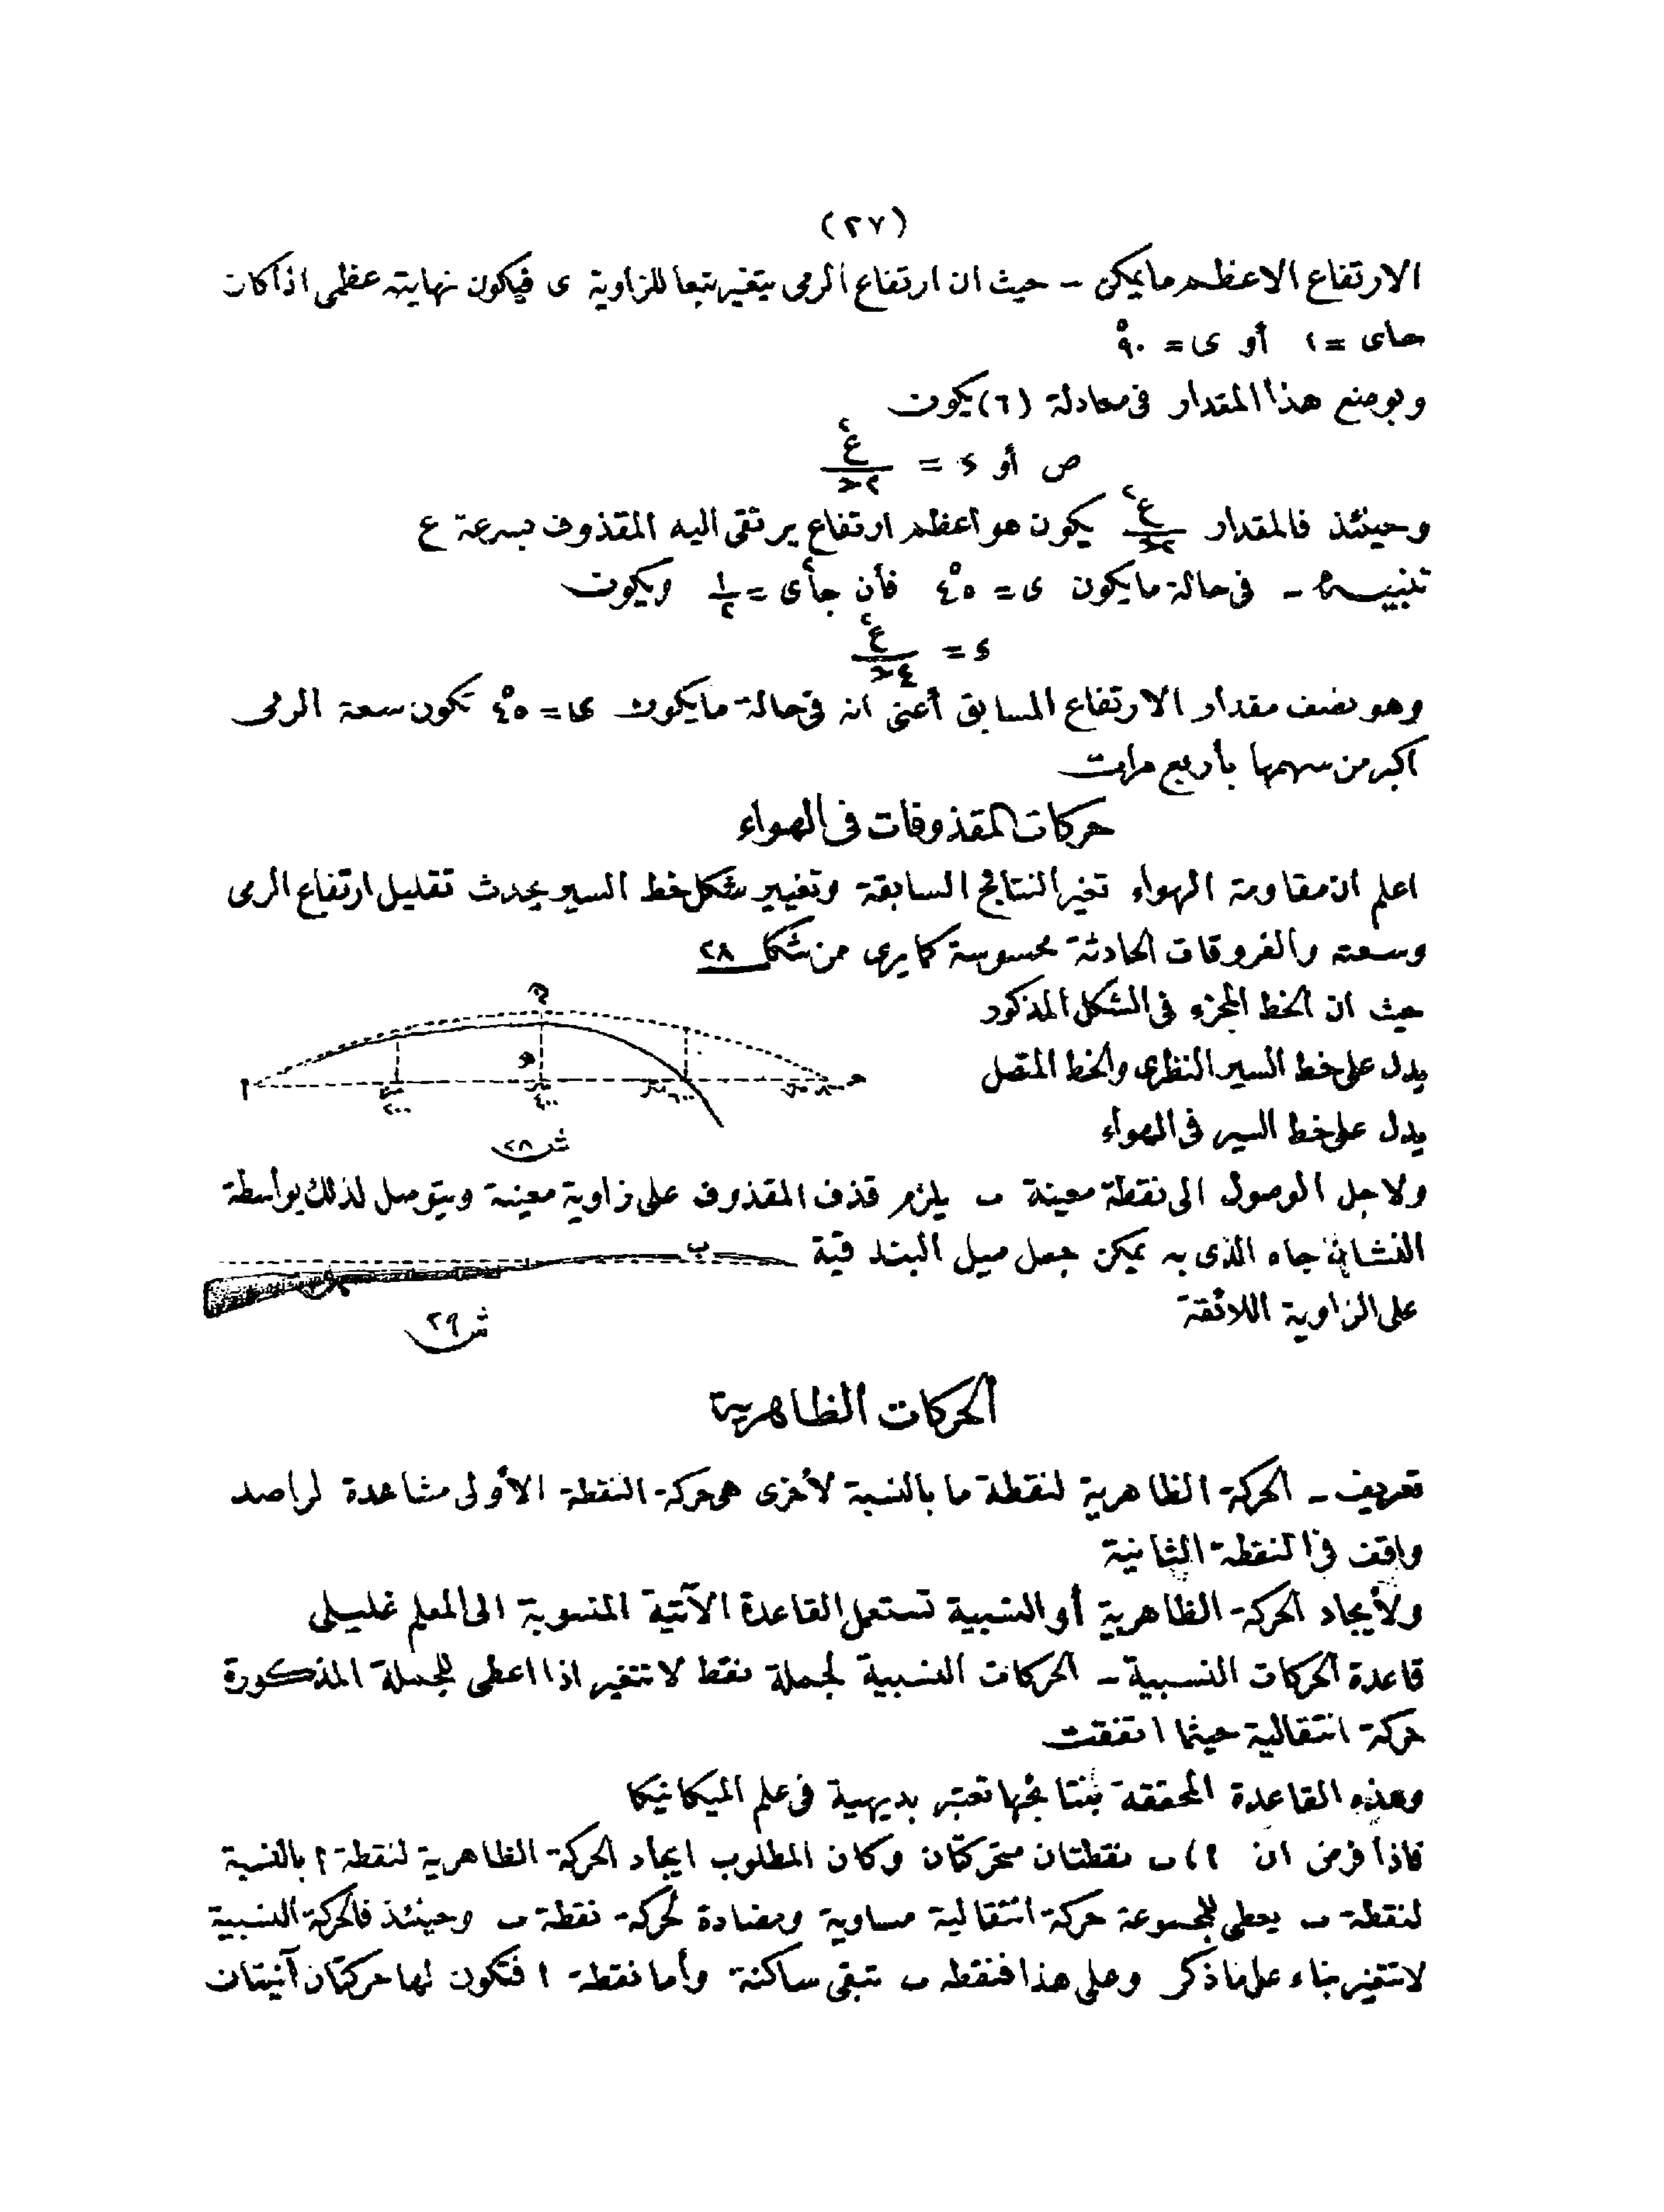 (٢٧)
الارتفاع الاعظم ما يمكن - حيث ان ارتفاع الرمى يتغير تبعا للزاوية ى فيكون نهايته عظمى اذا كان
حاى = ١ أو ى = ٩٠°
وبوضع هذا المقدار فى معادلة (٦) يكون
ص أو ء = ع٢/٢ح
وحينئذ فالمقدار ع٢/٢ح يكون هو اعظم ارتفاع يرتقى اليه المقذوف بسرعة ع
تنبيه - فى حالة ما يكون ى = ٤٥° فأن جا٢ى = ١/٢ ويكون
ء = ع٢/٤ح
وهو نصف مقدار الارتفاع السابق أعنى انه فى حالة ما يكون ى = ٤٥° تكون سعة الرمى
اكبر من سهمها بأربع مرات
حركات المقذوفات فى الهواء
اعلم ان مقاومة الهواء تغير النتائج السابقة وتغيير شكل خط السير يحدث تقليل ارتفاع الرمى
وسعته والفروقات الحادثة محسوسة كما يرى من شكل ٢٨
حيث ان الخط المجزء فى الشكل المذكور
يدل على خط السير النظرى والخط المتصل
يدل على خط السير فى الهواء
ش ٢٨
ولاجل الوصول الى نقطة معينة ب يلزم قذف المقذوف على زاوية معينة ويتوصل لذلك بواسطة
النشان جاه الذى به يمكن جعل ميل البندقية
على الزاوية اللائقة
ب
ش ٢٩
الحركات الظاهرية
تعريف - الحركة الظاهرية لنقطة ما بالنسبة لأخرى هى حركة النقطة الأولى مشاهدة لراصد
واقف فى النقطة الثانية
ولأيجاد الحركة الظاهرية أو النسبية تستعمل القاعدة الآتية المنسوبة الى المعلم غليلى
قاعدة الحركات النسبية - الحركات النسبية لجملة نقط لا تتغير اذا اعطى للجملة المذكورة
حركة انتقالية حيثما اتفقت
وهذه القاعدة المحققة بنتائجها تعتبر بديهية فى علم الميكانيكا
فاذا فرض ان ا ، ب نقطتان متحركتان وكان المطلوب ايجاد الحركة الظاهرية لنقطة ا بالنسبة
لنقطة ب يعطى للمجموعة حركة انتقالية مساوية ومضادة لحركة نقطة ب وحينئذ فالحركة النسبية
لا تتغير بناء على ما ذكر وعلى هذا فنقطه ب تبقى ساكنة وأما نقطة ا فتكون لها حركتان آنيتان